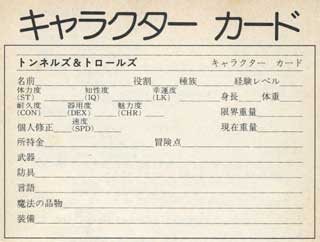 キャラクター カード
トンネルズ&トロールズ キャラクター カード
名前 役割 種族 経験レベル
体力度(ST) 知性度(IQ) 幸運度(LK) 身長 体重
耐久度(CON) 器用度(DEX) 魅力度(CHR) 限界重量
個人修正 速度(SPD) 現在重量
所持金 冒険点
武器
防具
言語
魔法の品物
装備